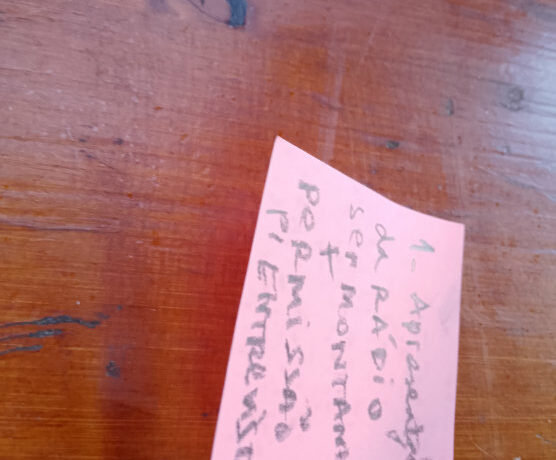 1- Apresenta
da RÁDIO
ser MONTAN
+
PERMISSÃO
P/ ENTREVIS